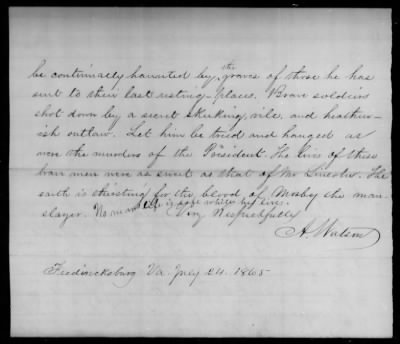 be continually haunted by the graves of those he has
sent to their last resting-places. Brave soldiers
shot down by a secret skulking, vile, and heathen-
ish outlaw. Let him be tried and hanged as
were the murders of the President. The lives of those
brave men were as sweet as that of Mr Lincoln. The
earth is thirsting for the blood of Mosby the man
slayer. No man's life is safe while he lives.
Very Respectfully
A. Watson
Fredericksburg Va. July 24. 1865